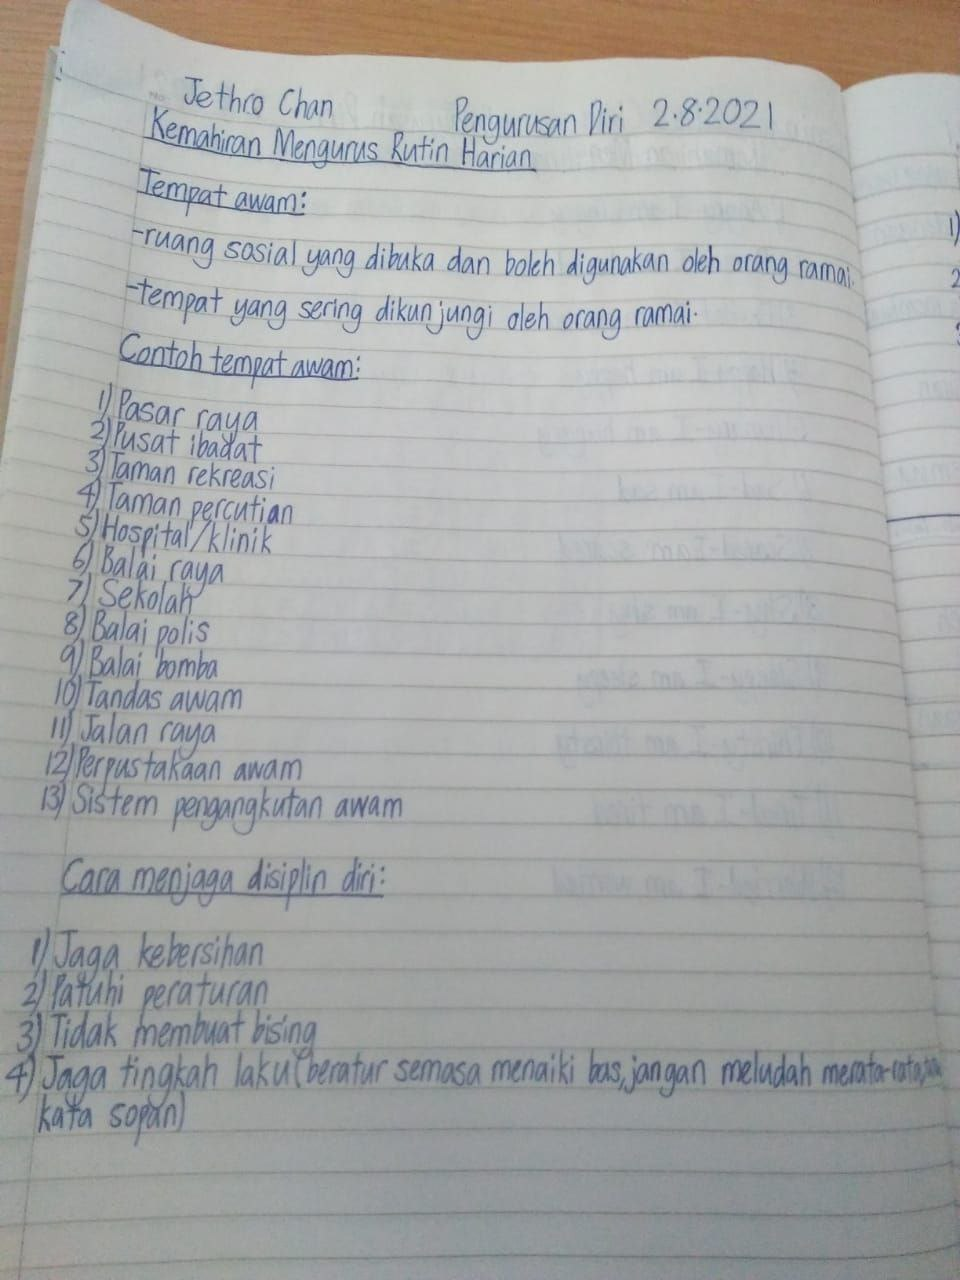 Jethro Chan Pengurusan Diri 2.8.2021
Kemahiran Mengurus Rutin Harian
Tempat awam:
-ruang sosial yang dibuka dan boleh digunakan oleh orang ramai.
-tempat yang sering dikunjungi oleh orang ramai.
Contoh tempat awam:
1) Pasar raya
2) Pusat ibadat
3) Taman rekreasi
4) Taman percutian
5) Hospital/klinik
6) Balai raya
7) Sekolah
8) Balai polis
9) Balai bomba
10) Tandas awam
11) Jalan raya
12) Perpustakaan awam
13) Sistem pengangkutan awam
Cara menjaga disiplin diri:
1) Jaga kebersihan
2) Patuhi peraturan
3) Tidak membuat bising
4) Jaga tingkah laku (beratur semasa menaiki bas, jangan meludah merata-rata,
kata sopan)